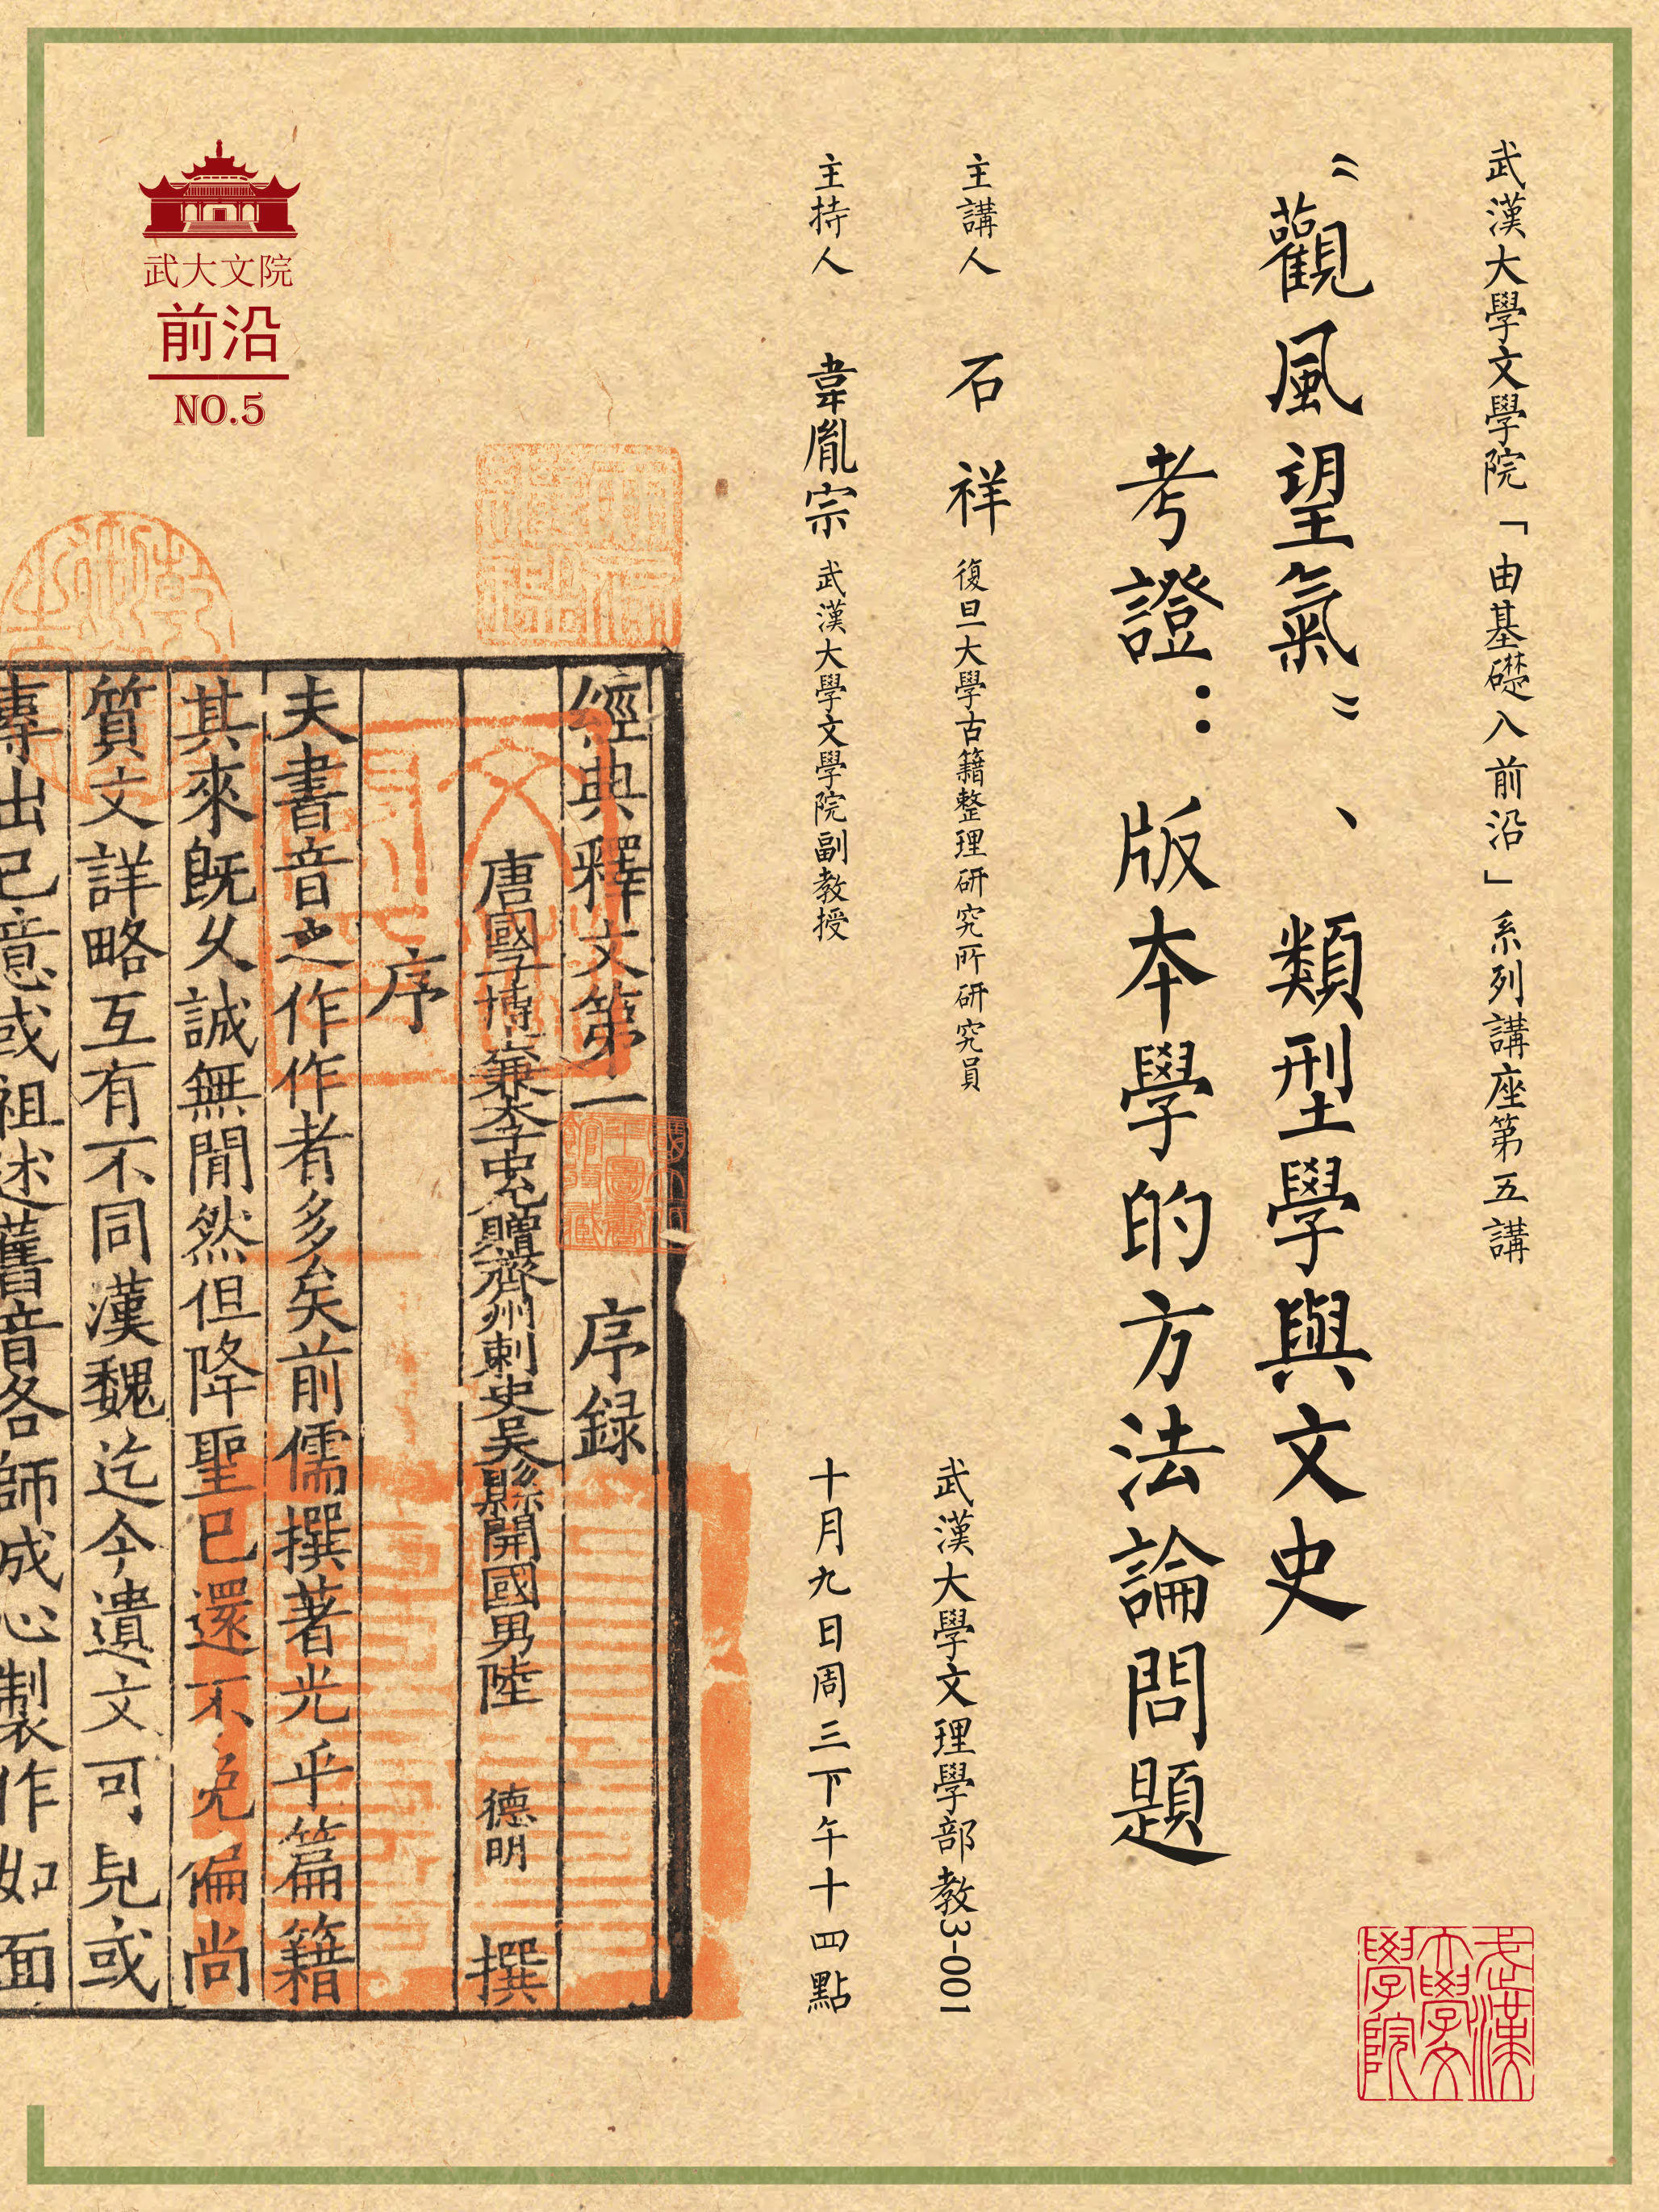 武漢大學文學院「由基礎入前沿」系列講座第五講
“觀風望氣”、類型學與文史
考證：版本學的方法論問題
主講人 石祥 復旦大學古籍整理研究所研究員
武漢大學文理學部教3-001
主持人 韋胤宗 武漢大學文學院副教授
十月九日周三下午十四點
武大文院
前沿
NO.5
經典釋文第一 序録
唐國子博士兼太子中允贈齊州刺史吳縣開國男陸 德明 撰
序
夫書音之作作者多矣前儒撰著光乎篇籍
其來旣久誠無閒然但降聖已還不免偏尚
質文詳略互有不同漢魏迄今遺文可見或
專出己意或祖述舊音各師成心製作如面
武漢大學文學院